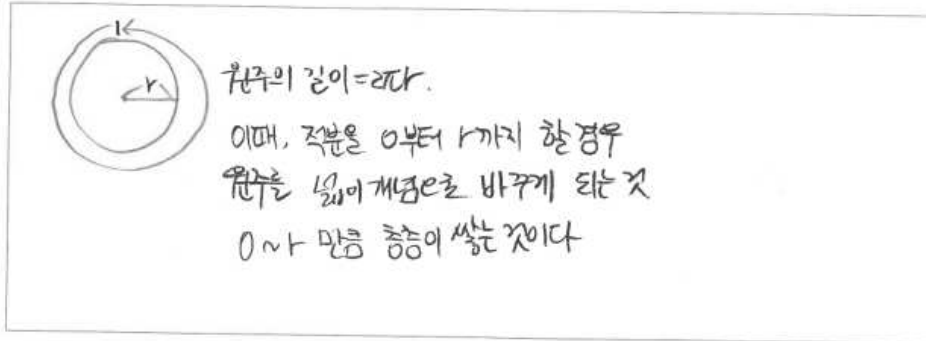 l
r
원주의 길이=2πr.
이때, 적분을 0부터 r까지 할 경우
원주를 넓이개념으로 바꾸게 되는 것
0~r 만큼 층층이 쌓는 것이다